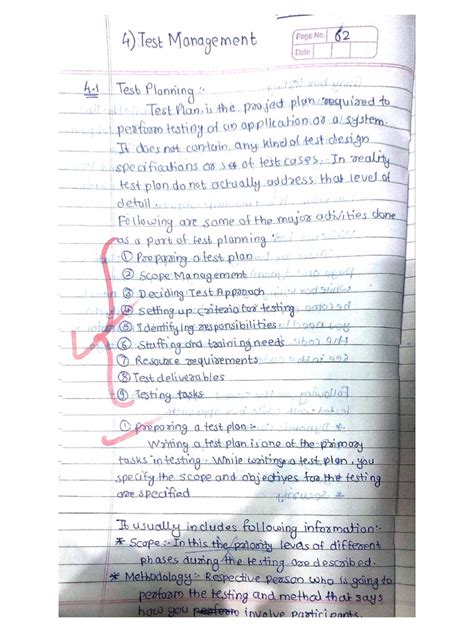 4) Test Management
Page No. 62
Date
4.1 Test Planning :-
Test Plan is the project plan required to
perform testing of an application or a system.
It does not contain any kind of test design
specifications or set of test cases. In reality
test plan do not actually address that level of
detail.
Following are some of the major activities done
as a part of test planning :-
① Preparing a test plan
② Scope Management
③ Deciding Test Approach
④ Setting up criteria for testing
⑤ Identifying responsibilities
⑥ Staffing and training needs
⑦ Resource requirements
⑧ Test deliverables
⑨ Testing tasks
① Preparing a test plan :-
Writing a test plan is one of the primary
tasks in testing. While writing a test plan, you
specify the scope and objectives for the testing
are specified
It usually includes following information:-
* Scope :- In this the priority levels of different
phases during the testing are described.
* Methodology :- Respective person who is going to
perform the testing and method that says
how you involve participants.